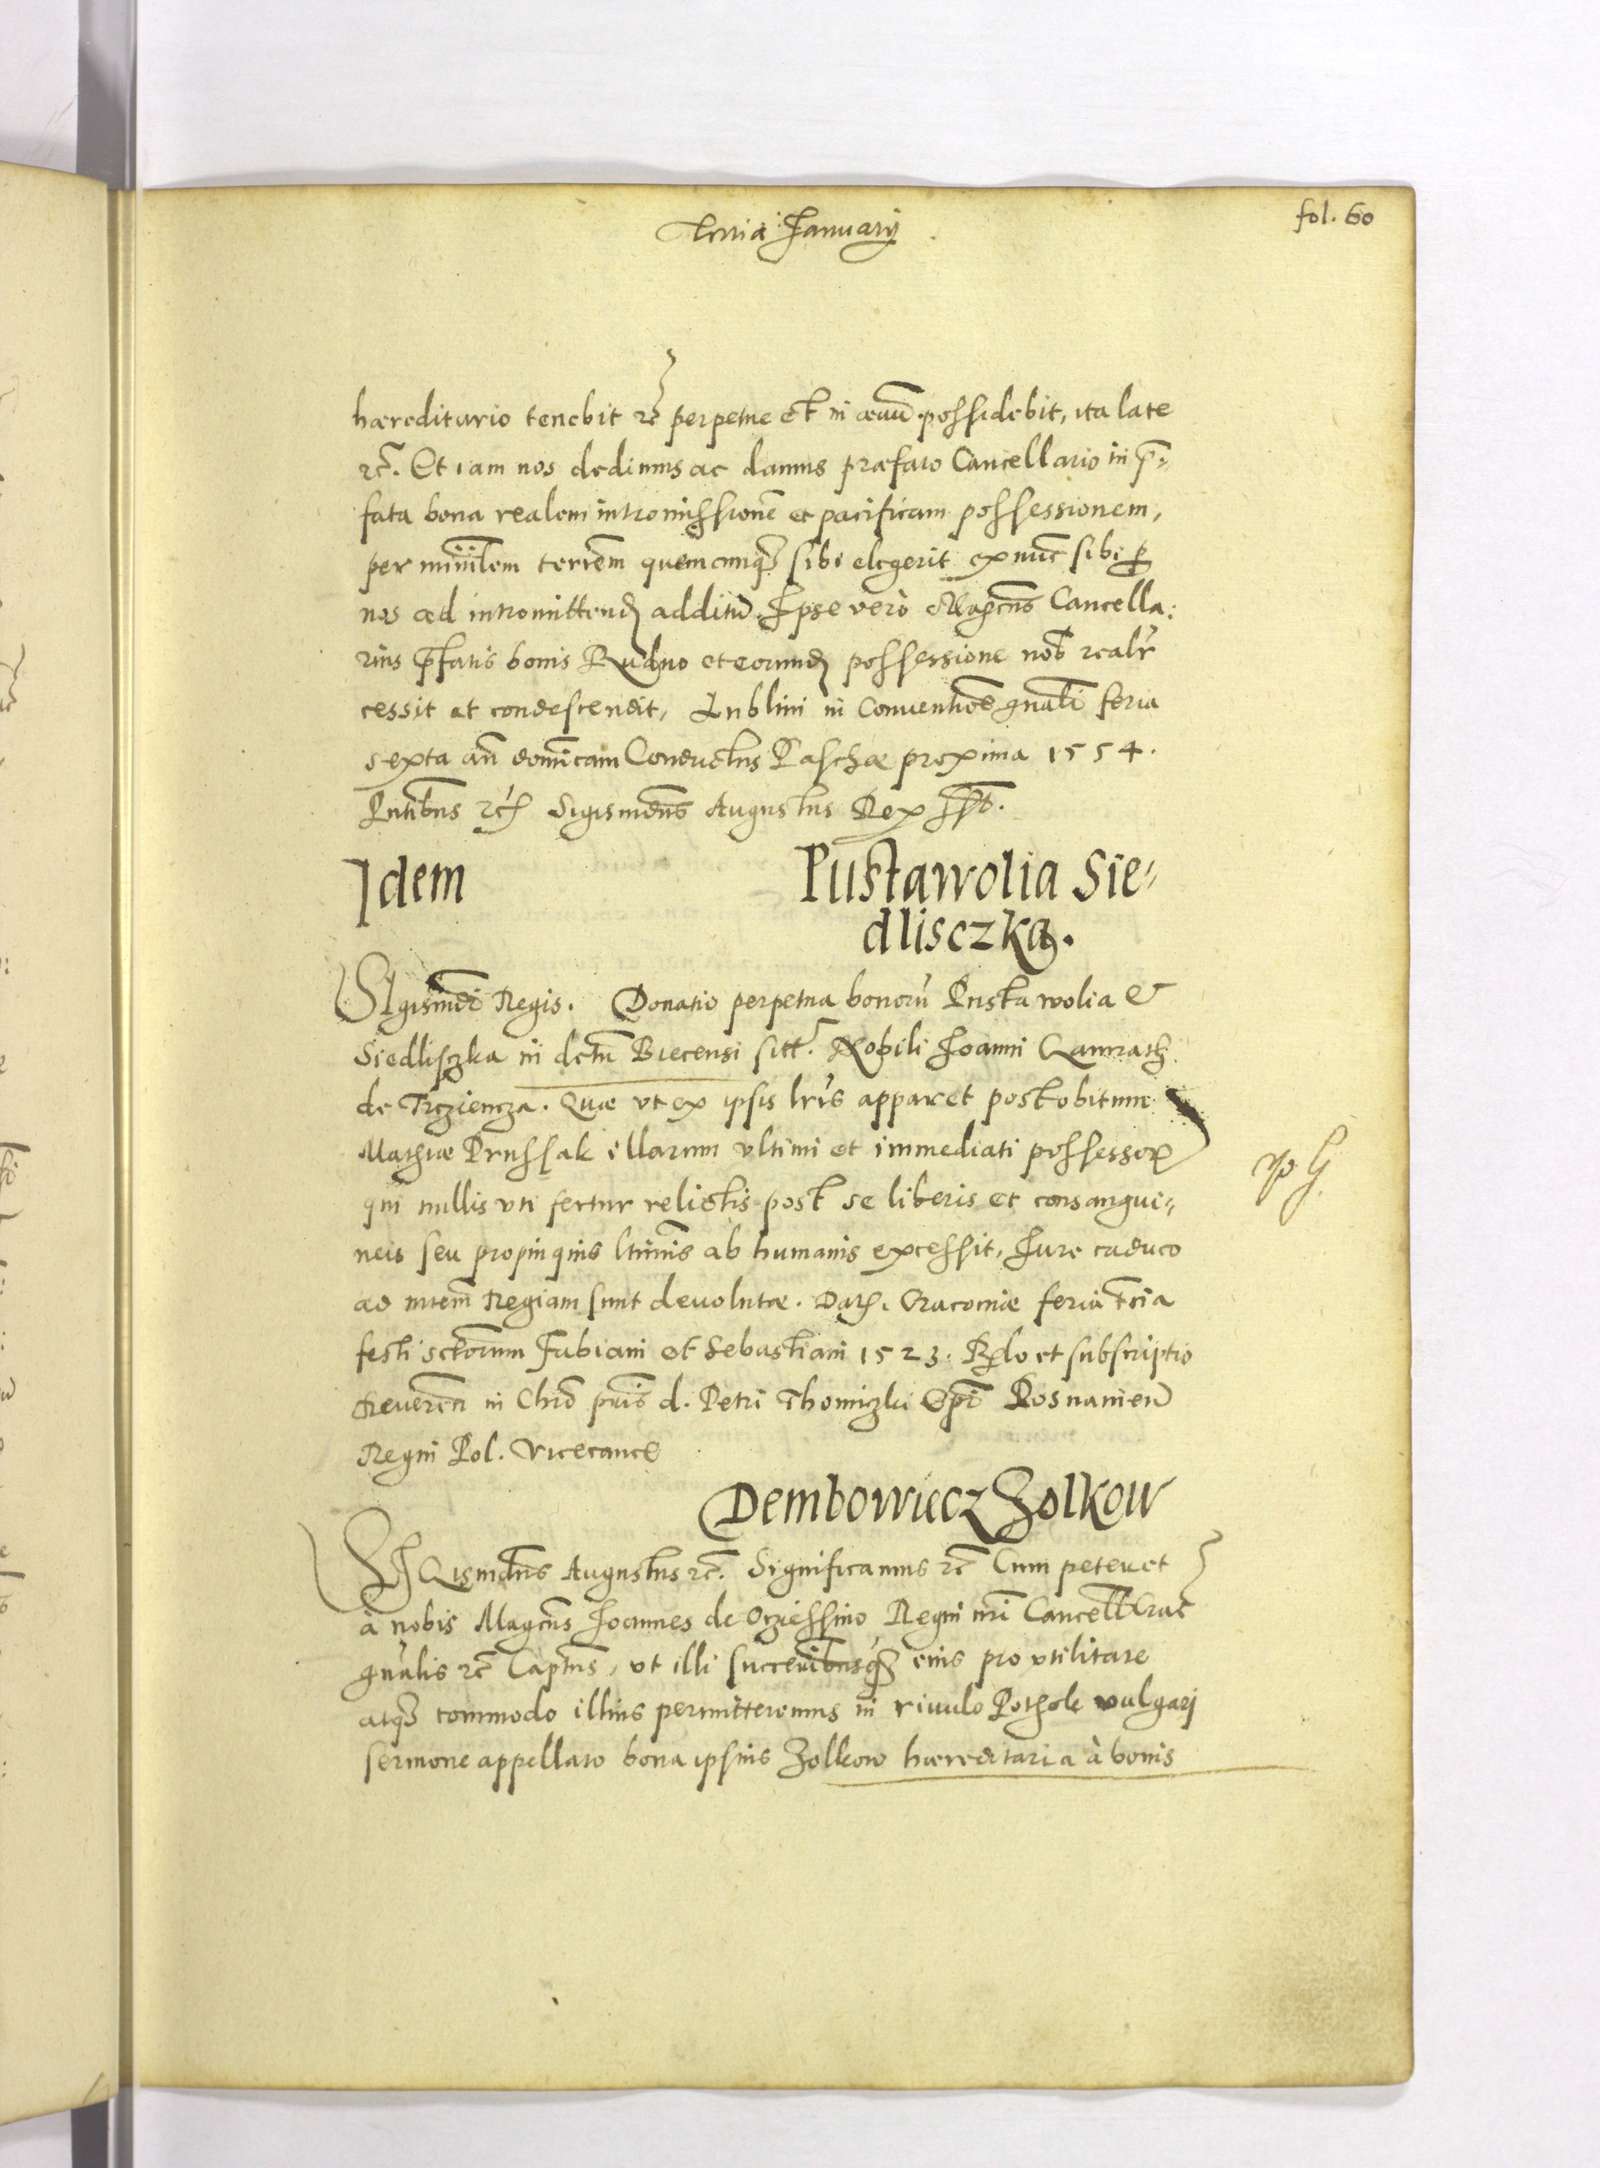 Tertia January
fol. 60
hæreditario tenebit rc̃ perpetue et in æuũ possidebit, ita late
rc̃. Et iam nos dedimus ac damus præfato Cancellario in p̃-
fata bona realem intromissionẽ et pacificam possessionem,
per terrẽm quemcumq3 sibi elegerit ex nũc sibi p
nos ad intromittend additũ. Ipse verò Magcũs Cancella:
rius p̃fatis bonis Rudno et eorund possessione nob̃ realr̃
cessit et condescendit, Lublini in Conuentiõe gnãli feria
sexta añ domĩcam Conductus Paschæ proxima 1554.
Pñtibus rc̃ Sigismdũs Augustus Rex sst.
Idem
Pustawolia Sie-
dlisczka.
SIgismdĩ Regis. Donatio perpetua bonorũ Pusta wolia &
Siedlisczka in dctũ Biecensi sitt. Nobili Joanni Kamrath
de Trcziencza. Quæ vt ex ipsis lr̃is apparet post obitum
Mathiæ Prussak illarum vltimi et immediati possessor
qui nullis vti fertur relictis post se liberis et consangui-
neis seu propinquis ltimis ab humanis excessit, Jure caduco
ad mtem̃ Regiam sunt deuolutæ. Dat. Cracouiæ feria tc̃ia
festi sctõrum Fabiani et Sebastiani 1523. Rlo et subscriptio
Reuerẽn in Chrõ pr̃is d. Petri Thomiczki Epĩ Posnanien
Regni Pol. Vicecance
Dembowiecz Zolkow
SIGismdũs Augustus rc̃. Significamus rc̃ Cum peteret
à nobis Magcũs Joannes de Ocziessino Regni nr̃i Cancell Crac
gnãlis rc̃ Captũs, vt illi succeribusq3 eius pro vtilitate
atq3 commodo illius permitteremus in riuulo Pothok vulgari
sermone appellato bona ipsius Zolkow hæreditaria à bonis